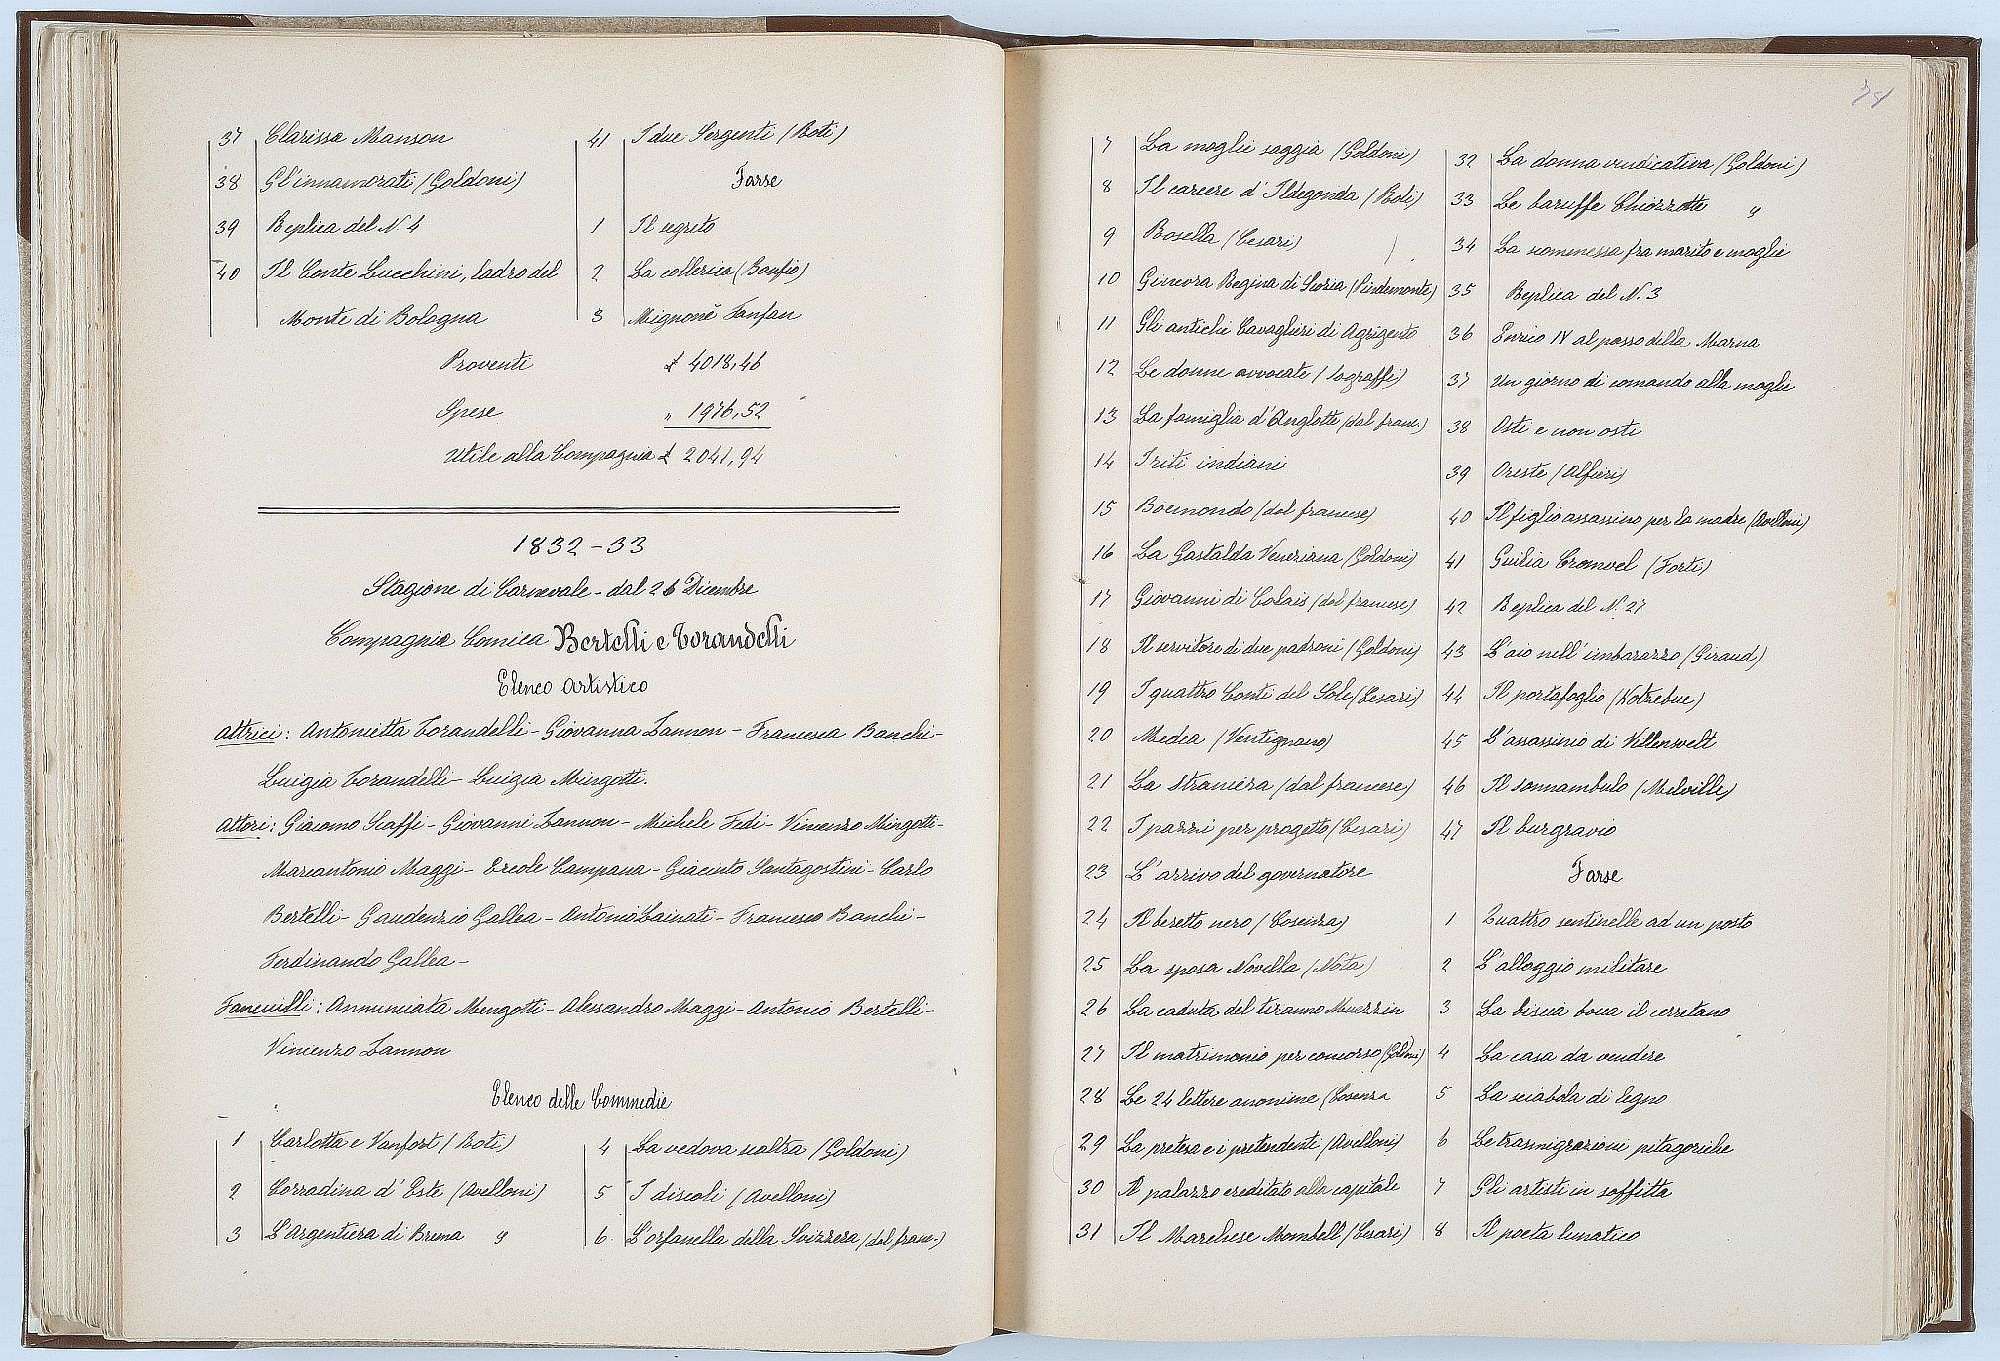 37 Clarissa Manson
38 Gl'innamorati (Goldoni)
39 Replica del N. 4
40 Il Conte Lucchini, ladro del
Monte di Bologna
41 I due Sergenti (Roti)
Farse
1 Il segreto
2 La collerica (Bonfio)
3 Mignonè Fanfan
Proventi £ 4018,46
Spese " 1976,52
Utile alla Compagnia £ 2041,94
1832-33
Stagione di Carnevale - dal 26 Dicembre
Compagnia Comica Bertelli e Torandelli
Elenco Artistico
Attrici: Antonietta Torandelli - Giovanna Zannon - Francesca Banchi -
Luigia Torandelli - Luigia Mingotti.
Attori: Giacomo Scaffi - Giovanni Zannon - Michele Fedi - Vincenzo Mingotti -
Marcantonio Maggi - Ercole Campana - Giacinto Santagostini - Carlo
Bertelli - Gaudenzio Gallea - Antonio Zainati - Francesco Banchi -
Ferdinando Gallea -
Fanciulli: Annunciata Mengotti - Alessandro Maggi - Antonio Bertelli -
Vincenzo Zannon
Elenco delle Commedie
1 Carlotta e Vanfort (Roti)
2 Corradina d'Este (Avelloni)
3 L'Argentiera di Brema "
4 La vedova scaltra (Goldoni)
5 I discoli (Avelloni)
6 L'orfanella della Svizzera (dal franc-)
7 La moglie saggia (Goldoni)
8 Il carcere d'Ildegonda (Roti)
9 Rosella (Cesari)
10 Ginevra Regina di Scozia (Pindemonte)
11 Gli antichi Cavaglieri di Agrigento
12 Le donne avvocate (Sograffi)
13 La famiglia d'Anglotte (dal franc.)
14 I riti indiani
15 Boemondo (dal francese)
16 La Gastalda Veneziana (Goldoni)
17 Giovanni di Calais (dal francese)
18 Il servitore di due padroni (Goldoni)
19 I quattro Conti del Sole (Cesari)
20 Medea (Ventignano)
21 La straniera (dal francese)
22 I pazzi per progetto (Cesari)
23 L'arrivo del governatore
24 Il beretto nero (Cosenza)
25 La sposa Novella (Nota)
26 La caduta del tiranno Muezzin
27 Il matrimonio per concorso (Goldoni)
28 Le 24 lettere anonime (Cosenza
29 La pretesa e i pretendenti (Avelloni)
30 Il palazzo ereditato alla capitale
31 Il Marchese Mombell (Cesari)
32 La donna vendicativa (Goldoni)
33 Le baruffe Chiozzotte "
34 La scommessa fra marito e moglie
35 Replica del N. 3
36 Enrico IV al passo della Marna
37 Un giorno di comando alla moglie
38 Osti e non osti
39 Oreste (Alfieri)
40 Il figlio assassino per la madre (Avelloni)
41 Giulia Cromvel (Forti)
42 Replica del N. 27
43 L'aio nell'imbarazzo (Giraud)
44 Il portafoglio (Kotzebue)
45 L'assassinio di Villenvelt
46 Il sonnambulo (Melville)
47 Il burgravio
Farse
1 Quattro sentinelle ad un posto
2 L'alloggio militare
3 La biscia boua il cerretano
4 La casa da vendere
5 La sciabola di legno
6 Le trasmigrazioni pitagoriche
7 Gli artisti in soffitta
8 Il poeta lunatico